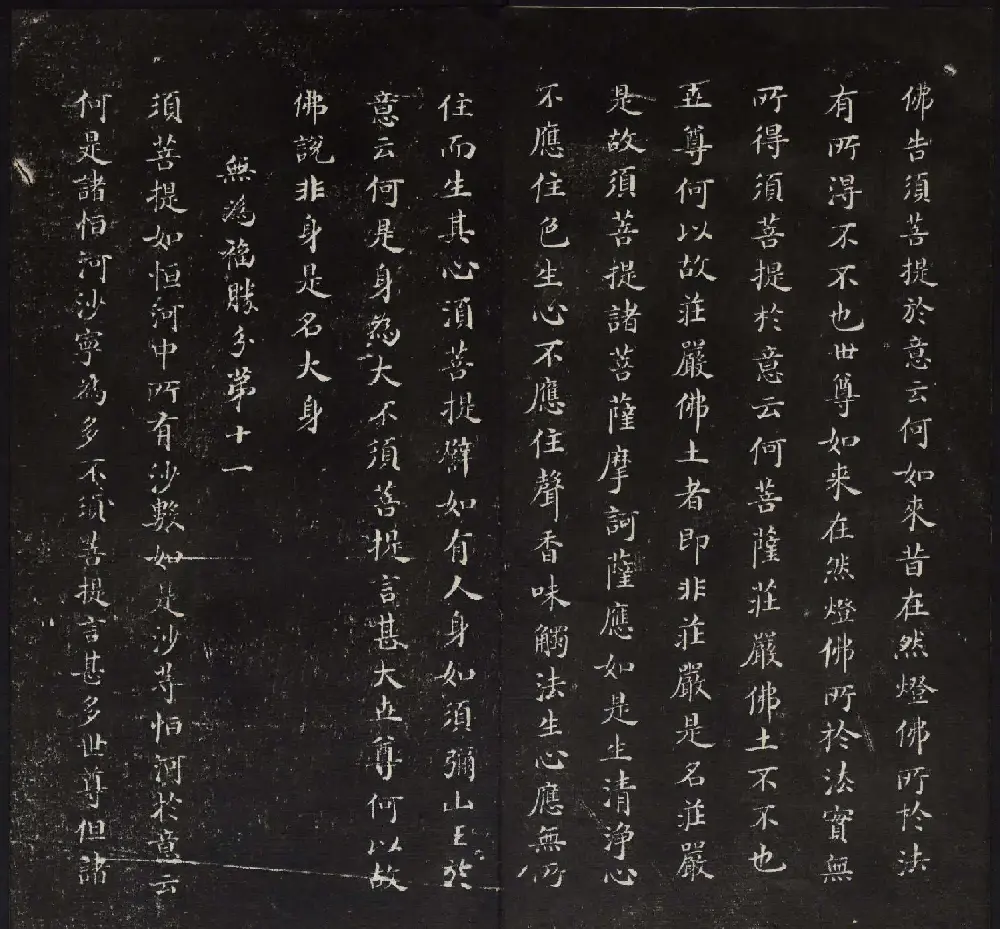 佛告須菩提於意云何如來昔在然燈佛所於法
有所得不不也世尊如來在然燈佛所於法實無
所得須菩提於意云何菩薩莊嚴佛土不不也
世尊何以故莊嚴佛土者即非莊嚴是名莊嚴
是故須菩提諸菩薩摩訶薩應如是生清淨心
不應住色生心不應住聲香味觸法生心應無所
住而生其心須菩提辟如有人身如須彌山王於
意云何是身為大不須菩提言甚大世尊何以故
佛說非身是名大身
無為福勝分第十一
須菩提如恒河中所有沙數如是沙等恒河於意云
何是諸恒河沙寧為多不須菩提言甚多世尊但諸